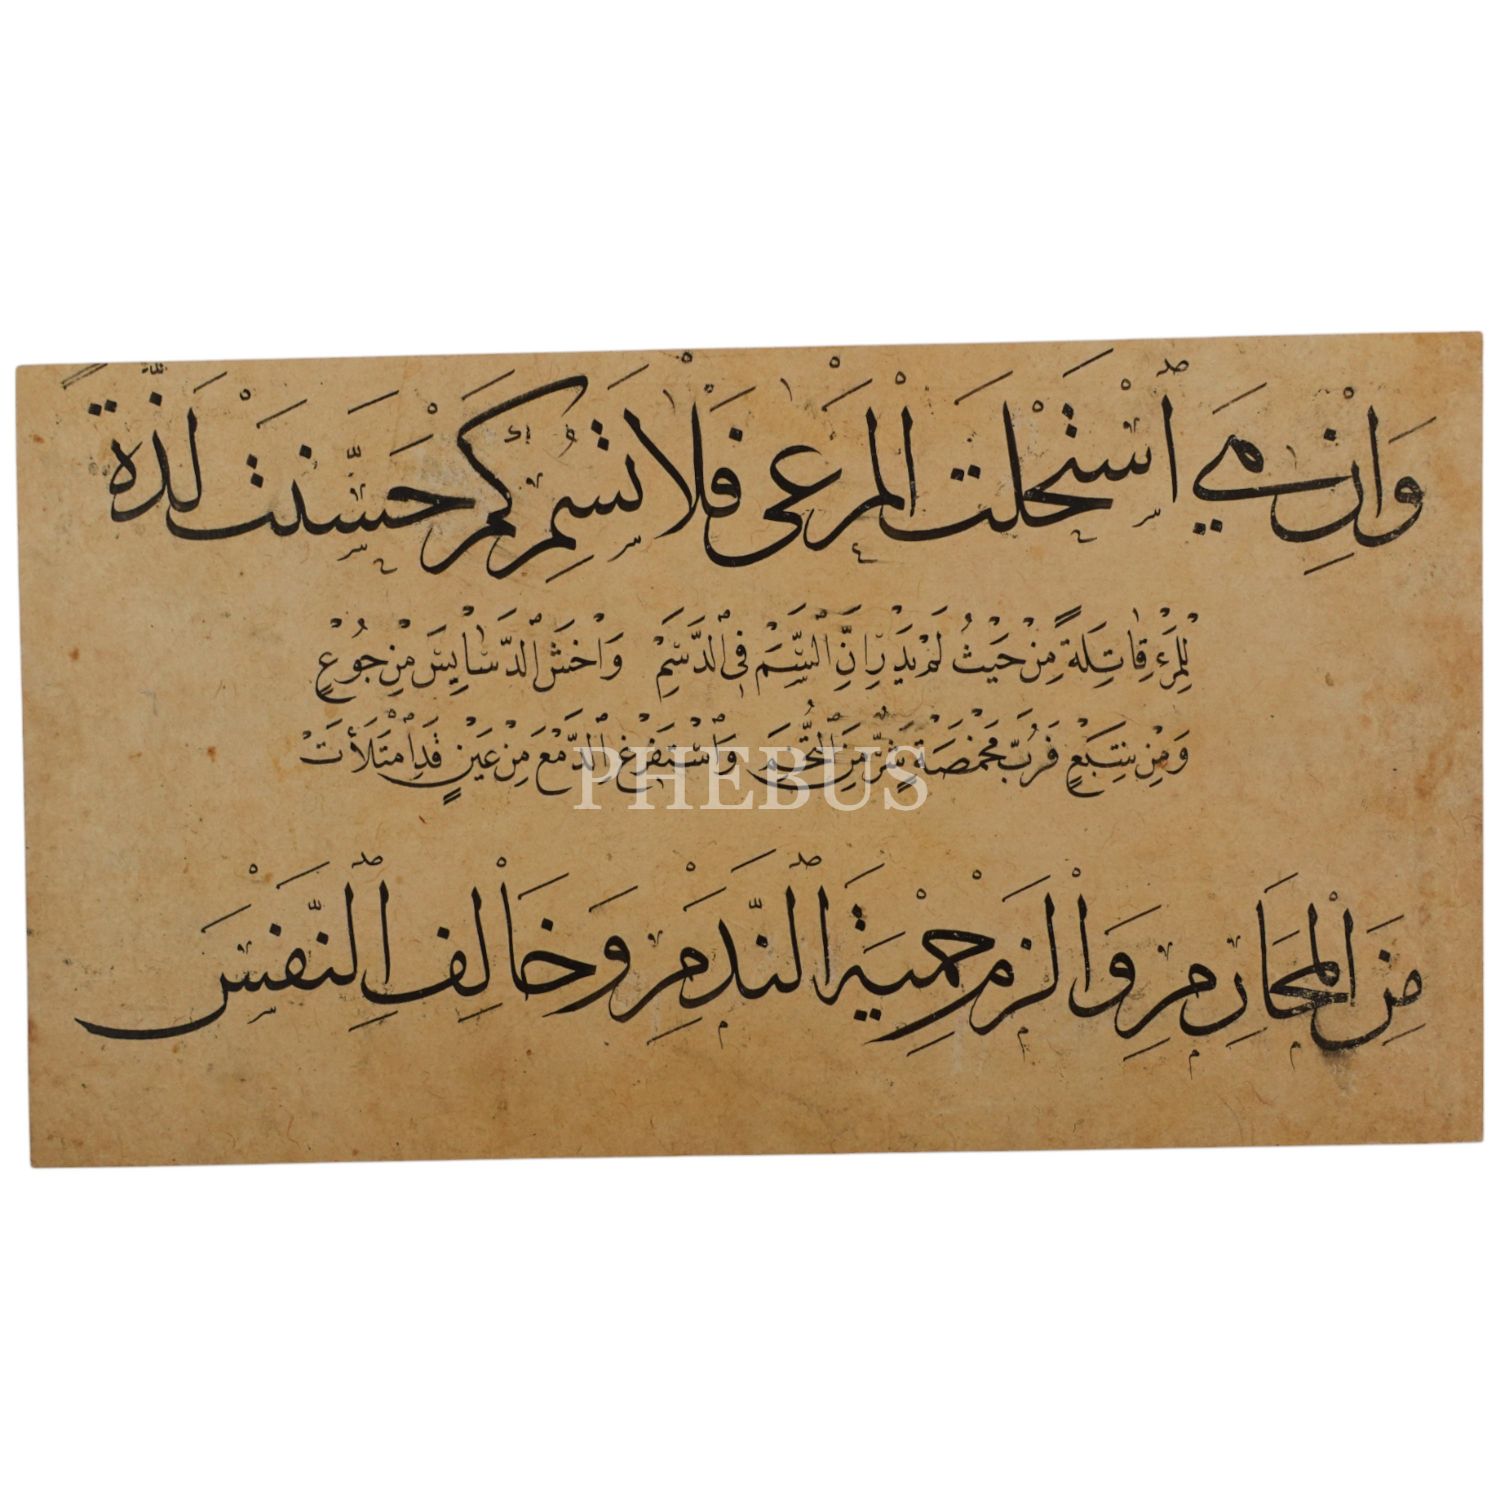 وَاِنْ هِيَ اسْتَحْلَتِ الْمَرْعٰى فَلَا تُسِمِ كَمْ حَسَّنَتْ لَذَّةً
لِلْمَرْءِ قَاتِلَةً مِنْ حَيْثُ لَمْ يَدْرِ اَنَّ السَّمَّ فِى الدَّسَمِ وَاخْشَ الدَّسَايِسَ مِنْ جُوعٍ
وَمِنْ شِبَعٍ فَرُبَّ مَخْمَصَةٍ شَرٌّ مِنَ التُّخَمِ وَاسْتَفْرِغِ الدَّمْعَ مِنْ عَيْنٍ قَدِ امْتَلَأَتْ
PHEBUS
مِنَ الْمَحَارِمِ وَالْزَمْ حِمْيَةَ النَّدَمِ وَخَالِفِ النَّفْسَ